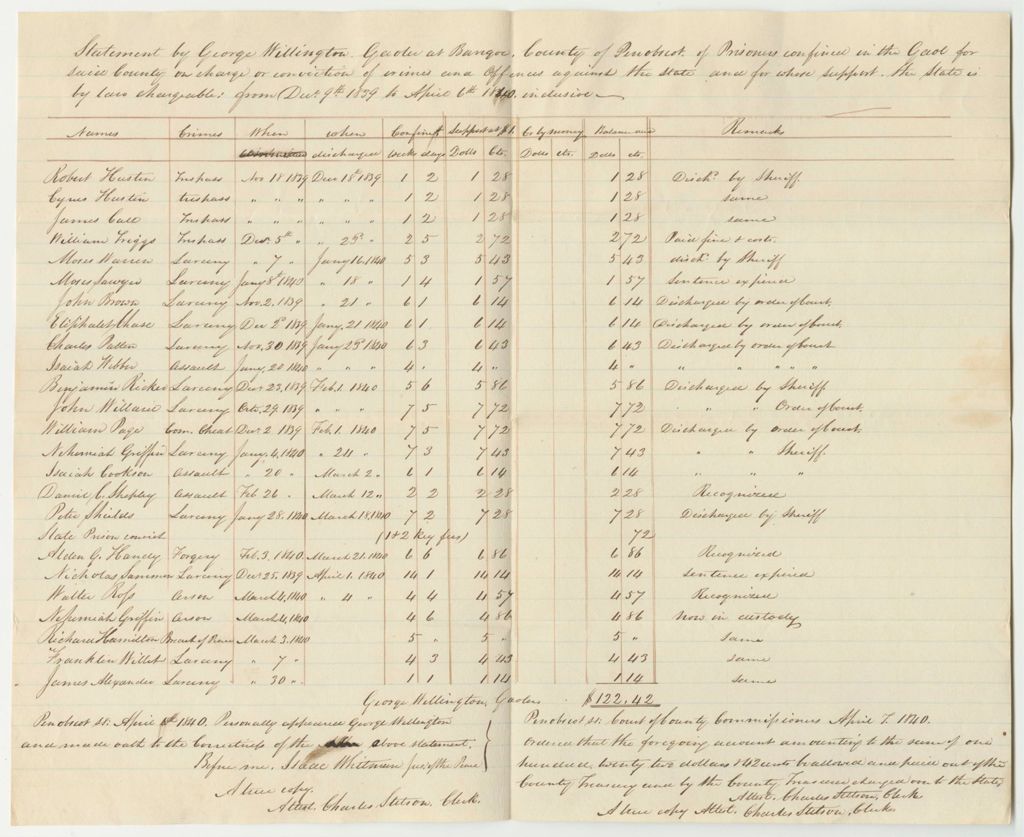 Statement by George Willington. Gaoler at Bangor, County of Penobscot, of Prisoners confined in the Gaol for
said County on charge or conviction of crimes and offences against the state and for whose support the State is
by law chargeable: from Decr 9th 1839 to April 6th 1840. inclusive
Names Crimes When when Confined Support at $1. Cr by money Balance due Remarks
discharged weeks days Dolls Cts. Dolls cts. Dolls cts.
Robert Hustin Trespass Nov 18 1839 Decr 18th 1839 1 2 1 28 1 28 Disch.d by Sheriff
Cyrus Hustin trespass " " " " " " 1 2 1 28 1 28 same
James Call Trespass " " " " " " 1 2 1 28 1 28 same
William Triggs Trespass Decr 5th " " 25th " 2 5 2 72 2 72 Paid fine & costs.
Moses Warren Larceny " 7 " Jany 16. 1840 5 3 5 43 5 43 disch.d by Sheriff
Moses Sawyer Larceny Jany 8th 1840 " 18 " 1 4 1 57 1 57 Sentence expired
John Brown Larceny Nov. 2. 1839 " 21 " 6 1 6 14 6 14 Discharged by order of Court.
Eliphalet Chase Larceny Decr 2d 1839 Jany. 21 1840 6 1 6 14 6 14 Discharged by order of Court.
Charles Patten Larceny Nov. 30 1839 Jany 23d 1840 6 3 6 43 6 43 Discharged by order of Court
Isaiah Webber Assault Jany. 20 1840 4 " 4 " 4 " " " " " "
Benjamin Ricker Larceny Decr 23. 1839 Feb. 1. 1840 5 6 5 86 5 86 Discharged by Sheriff
John Willard Larceny Octr. 29. 1839 " " " 7 5 7 72 7 72 " " Order of Court.
William Page Com. Cheat Decr 2 1839 Feb 1. 1840 7 5 7 72 7 72 Discharged by order of Court.
Nehemiah Griffin Larceny Jany. 4. 1840 " 24 " 7 3 7 43 7 43 " " Sheriff.
Isaiah Cookson Assault " 20 " March 2 " 6 1 6 14 6 14 " " "
Daniel C. Shepley Assault Feb 26 " March 12 " 2 2 2 28 2 28 Recognized
Peter Shields Larceny Jany 28. 1840 March 18. 1840 7 2 7 28 7 28 Discharged by Sheriff
State Prison convict (1 & 2 key fees) 72
Alden G. Handy Forgery Feb. 3. 1840 March 21. 1840 6 6 6 86 6 86 Recognized
Nicholas Larceny Decr 25. 1839 April 1. 1840 14 1 14 14 14 14 sentence expired
Walter Ross Arson March 4. 1840 " 4 " 4 4 4 57 4 57 Recognized
Nehemiah Griffin Arson March 4. 1840 4 6 4 86 4 86 Now in custody
Richard Hamilton Breach of Peace March 3. 1840 5 " 5 " 5 " same
Franklin Willet Larceny " 7 " 4 3 4 43 4 43 same
James Alexander Larceny " 30 " 1 1 1 14 1 14 same
George Willington, Gaoler. $122.42
Penobscot ss. April 1840. Personally appeared George Willington
and made oath to the correctness of the above statement.
Before me. Isaac Whitman Jus. of the Peace
A true copy.
Attest. Charles Stetson, Clerk.
Penobscot ss. Court of County Commissioners April 7. 1840.
Ordered that the foregoing account amounting to the sum of one
hundred, twenty two dollars & 42 cents be allowed and paid out of the
County Treasury and by the County Treasurer charged over to the State.
Attest. Charles Stetson, Clerk
A true copy Attest. Charles Stetson, Clerk.